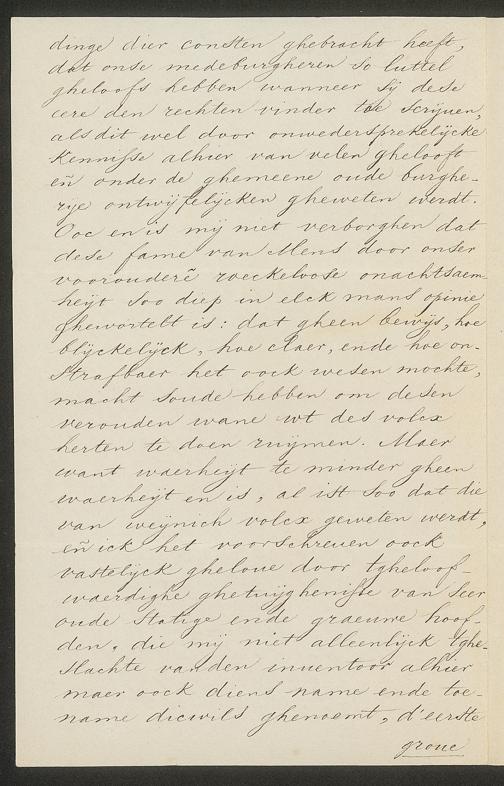 dinge dier consten ghebracht heeft,
dat onse medeburgheren so luttel
gheloofs hebben wanneer sij dese
eere den rechten vinder toe scrijuen,
als dit wel door onwedersprekelijcke
kennisse alhier van velen ghelooft
eñ onder de ghemeene oude burghe-
rije ontwijfelijcken gheweten werdt.
Ooc en is mij niet verborghen dat
dese fame van Mens door onser
voorouderē roeckeloose onachtsaem-
heijt soo diep in elck mans opinie
ghewortelt is: dat gheen bewijs, hoe
blijckelijck, hoe claer, ende hoe on-
strafbaer het oock wesen mochte,
macht soude hebben om desen
verouden wane wt des volcx
herten te doen ruijmen. Maer
want waerheijt te minder gheen
waerheijt en is, al ist soo dat die
van weijnich volcx geweten werdt,
eñ ick het voorschreuen oock
vastelijck gheloue door tgheloof-
waerdighe ghetuijghenisse van seer
oude statige ende graeuwe hoof-
den, die mij niet alleenlijck tghe-
slachte vanden inuentoor alhier
maer oock diens name ende toe-
name dicwils ghenoemt, d'eerste
groue